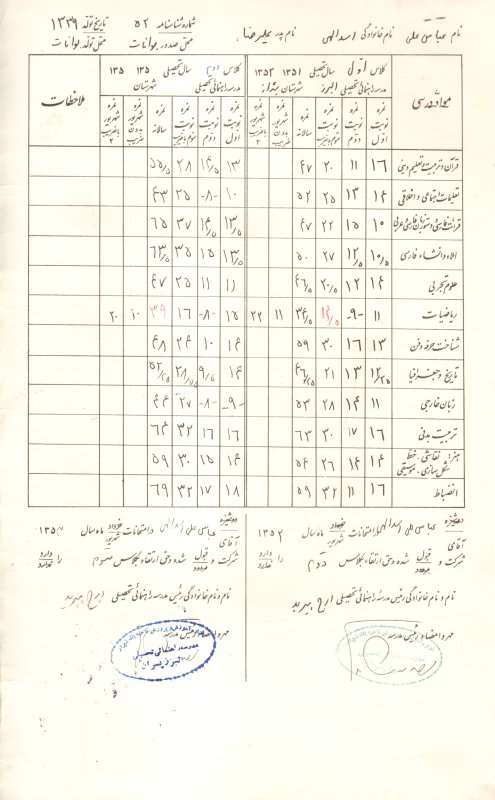 نام عباسعلی نام خانوادگی اسدالهی نام پدر علیرضا شماره شناسنامه ۵۲ تاریخ تولد ۱۳۳۹
محل صدور بوانات محل تولد بوانات
مواد درسی کلاس اول سال تحصیلی ۱۳۵۱ ۱۳۵۲ کلاس دوم سال تحصیلی ۱۳۵ ۱۳۵ ملاحظات
مدرسه راهنمائی تحصیلی شهرستان مدرسه راهنمائی تحصیلی شهرستان
نمره نوبت اول نمره نوبت دوم نمره نوبت سوم با ضریب نمره سالانه نمره شهریور بدون ضریب نمره شهریور با ضریب ۲ نمره نوبت اول نمره نوبت دوم نمره نوبت سوم با ضریب نمره سالانه نمره شهریور بدون ضریب نمره شهریور با ضریب ۲
قرآن و تربیت و تعلیم دینی ۱۶ ۱۱ ۲۰ ۴۷ ۱۳ ۱۴/۵ ۲۸ ۵۵/۵
تعلیمات اجتماعی و اخلاقی ۱۴ ۱۳ ۲۵ ۵۲ ۱۰ -۸- ۲۵ ۴۳
قرائت فارسی و دستور زبان فارسی و عربی ۱۰ ۱۵ ۲۲ ۴۷ ۱۳/۵ ۱۴/۵ ۳۷ ۶۵
املاء و انشاء فارسی ۱۰/۵ ۱۲/۵ ۲۷ ۵۰ ۱۳/۵ ۱۵ ۳۵ ۶۳/۵
علوم تجربی ۱۴ ۱۲ ۲۰/۵ ۴۶/۵ ۱۱ ۱۱ ۲۵ ۴۷
ریاضیات ۱۱ -۹- ۱۴/۵ ۳۴/۵ ۱۱ ۲۲ ۱۵ -۸- ۱۶ ۳۹ ۱۰ ۲۰
شناخت حرفه و فن ۱۳ ۱۶ ۳۰ ۵۹ ۱۴ ۱۰ ۲۴ ۴۸
تاریخ و جغرافیا ۱۲/۲۵ ۱۳ ۲۱ ۴۶/۲۵ ۱۴ ۹/۵ ۲۸/۷۵ ۵۲/۲۵
زبان خارجی ۱۱ ۱۴ ۲۸ ۵۳ -۹- -۸- ۲۷ ۴۴
تربیت بدنی ۱۶ ۱۷ ۳۰ ۶۳ ۱۶ ۱۶ ۳۲ ۶۴
هنر: نقاشی. خط شکل سازی. موسیقی ۱۴ ۱۴ ۲۶ ۵۴ ۱۴ ۱۵ ۳۰ ۵۹
انضباط ۱۶ ۱۱ ۳۲ ۵۹ ۱۸ ۱۷ ۳۲ ۶۹
دوشیزه آقای عباسعلی اسدالهی در امتحانات خرداد شهریور ماه سال ۱۳۵۲
شرکت و قبول مردود شده و حق ارتقاء بکلاس دوم را دارد ندارد
نام و نام خانوادگی رئیس مدرسه راهنمائی تحصیلی ایرج
مهر و امضاء رئیس مدرسه
دوشیزه آقای عباسعلی اسدالهی در امتحانات خرداد شهریور ماه سال ۱۳۵۳
شرکت و قبول مردود شده و حق ارتقاء بکلاس سوم را دارد ندارد
نام و نام خانوادگی رئیس مدرسه راهنمائی تحصیلی ایرج
مهر و امضاء رئیس مدرسه
مدرسه راهنمائی تحصیلی